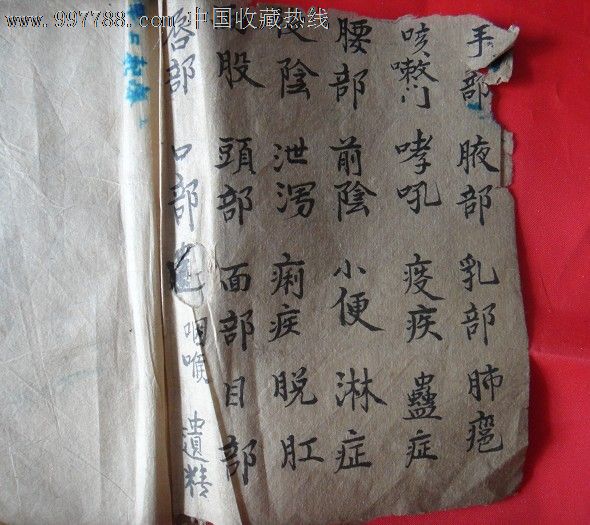 www.997788.com 中国收藏热线
手部 腋部 乳部 肺
咳嗽门 哮吼 疫疾 蠱症
腰部 前陰 小便 淋症
陰 泄泻 痢疾 脱肛
股 頭部 面部 目部
唇部 口部 咽喉 遺精